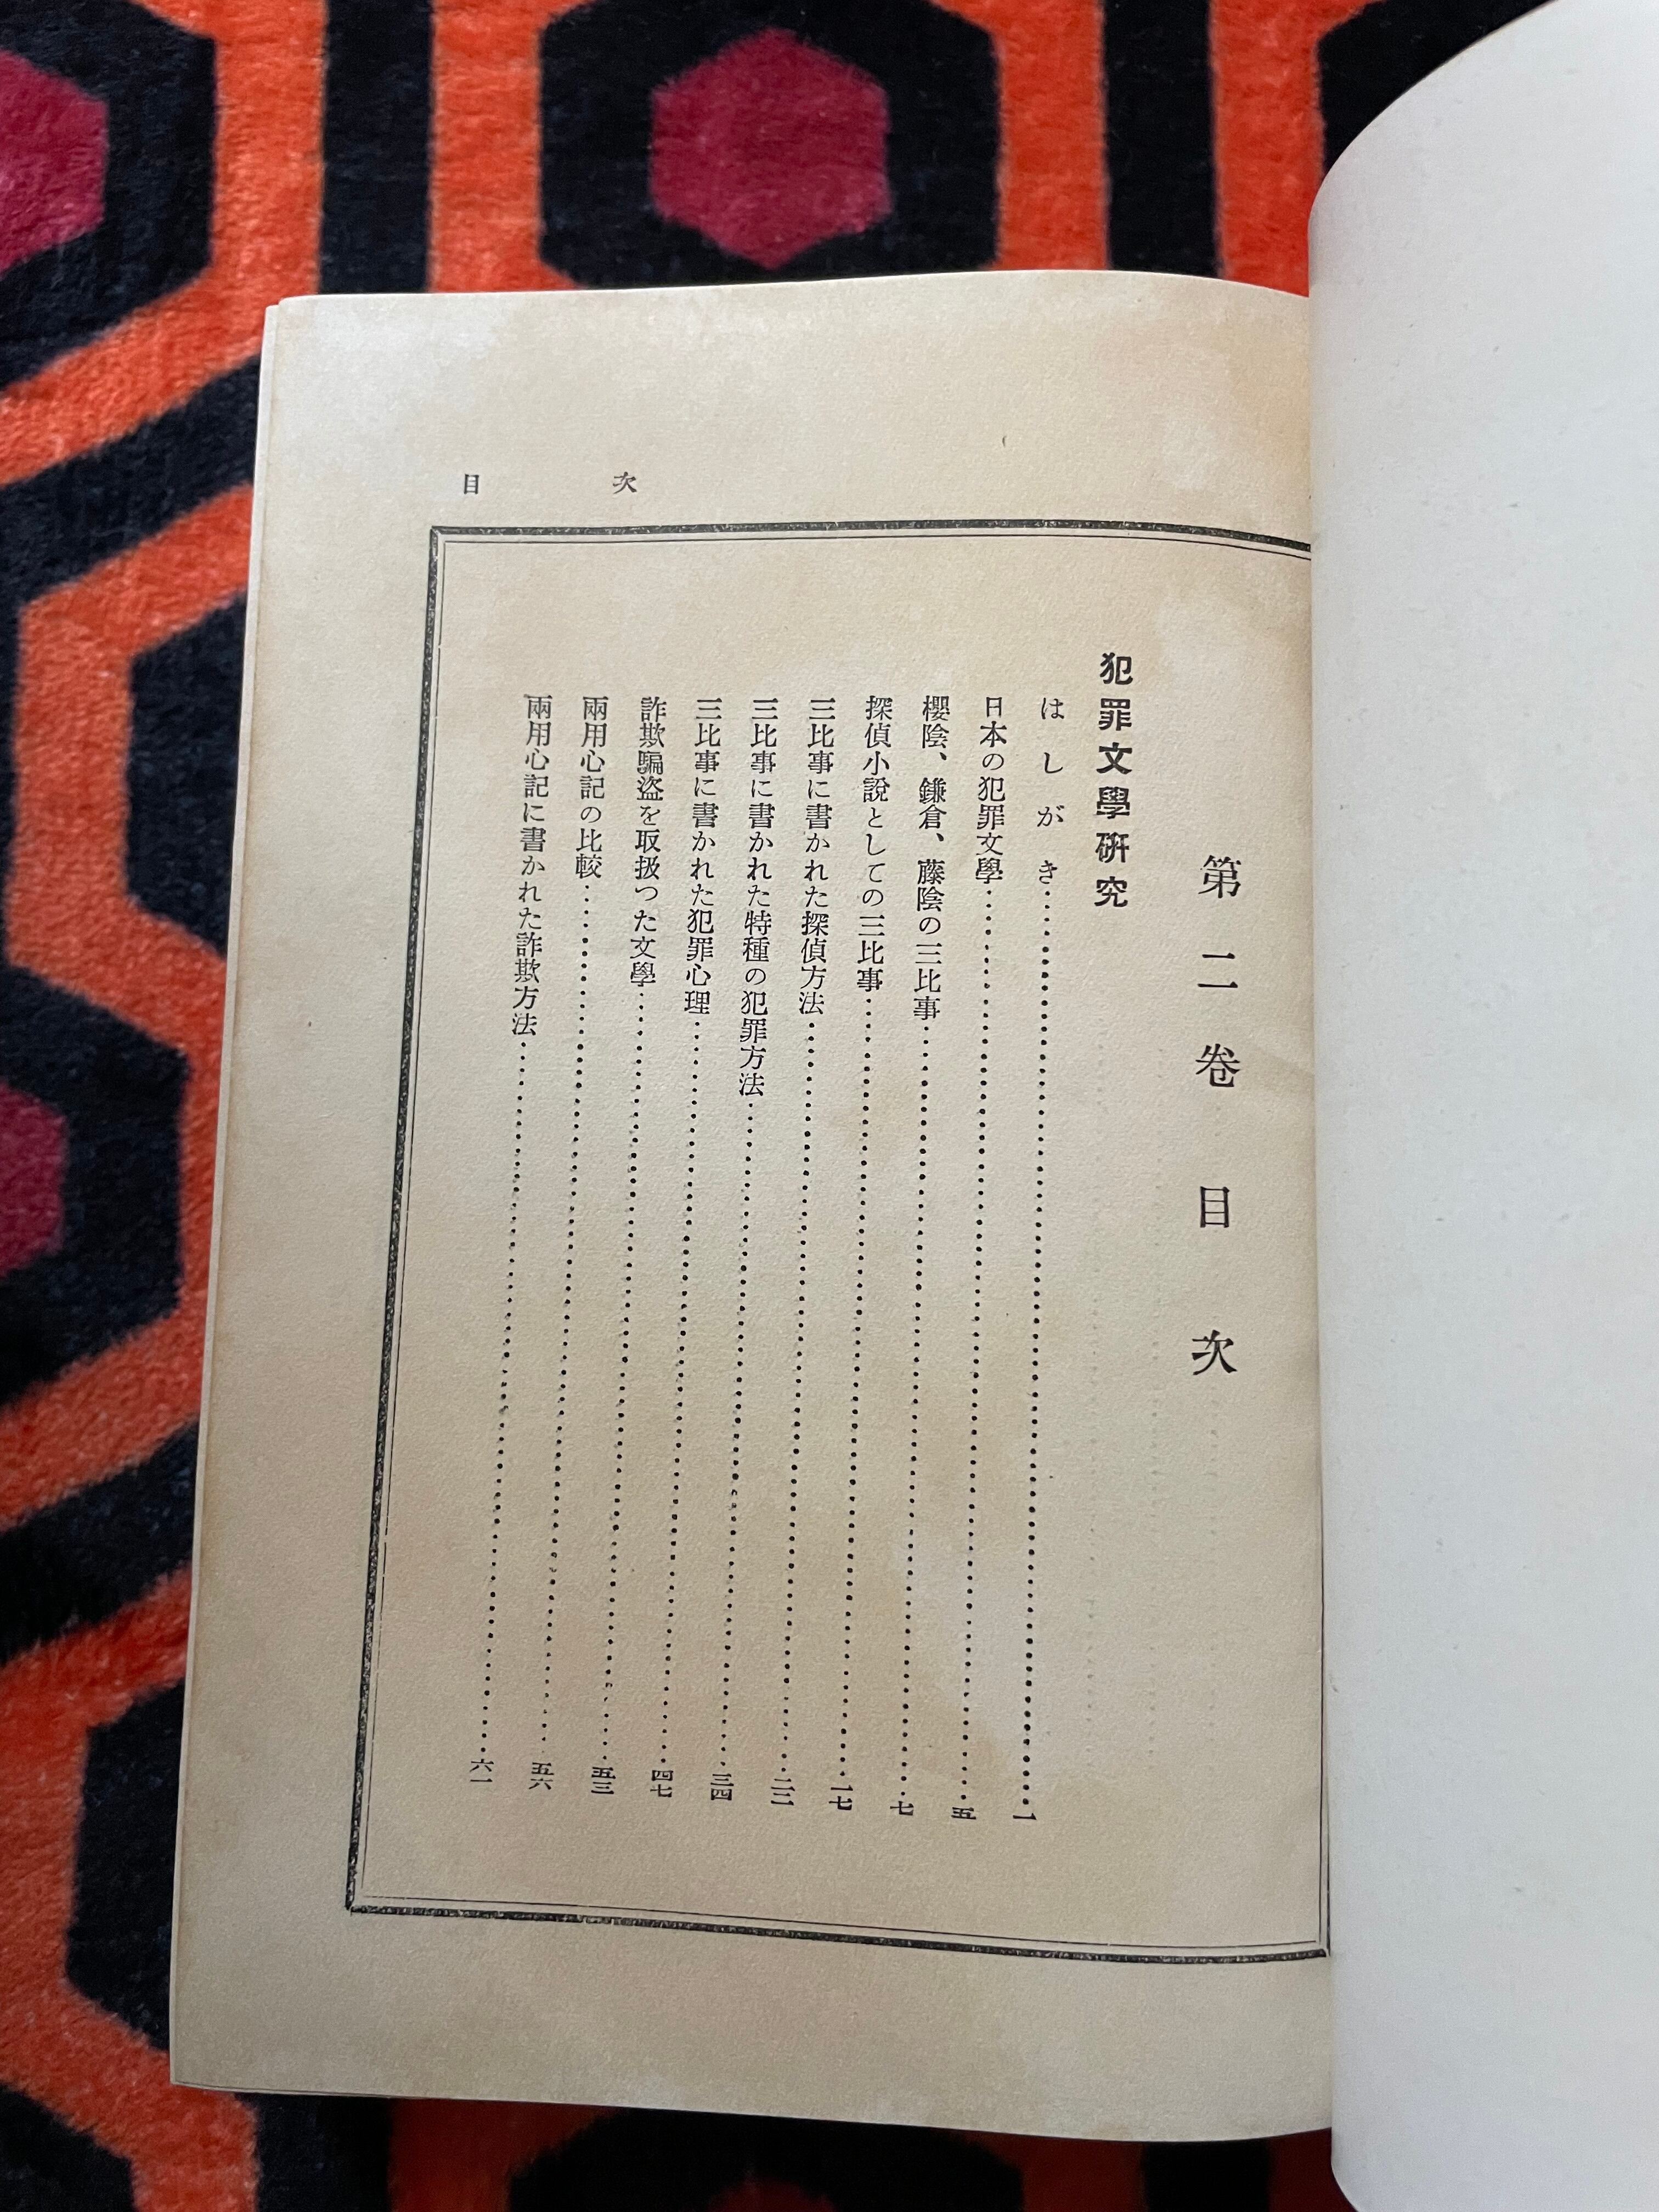 目次
第二卷目次
犯罪文學硏究
はしがき…一
日本の犯罪文學…五
櫻陰、鎌倉、藤陰の三比事…七
探偵小說としての三比事…一七
三比事に書かれた探偵方法…二二
三比事に書かれた特種の犯罪方法…三四
三比事に書かれた犯罪心理…四七
詐欺騙盜を取扱つた文學…五三
兩用心記の比較…五六
兩用心記に書かれた詐欺方法…六一